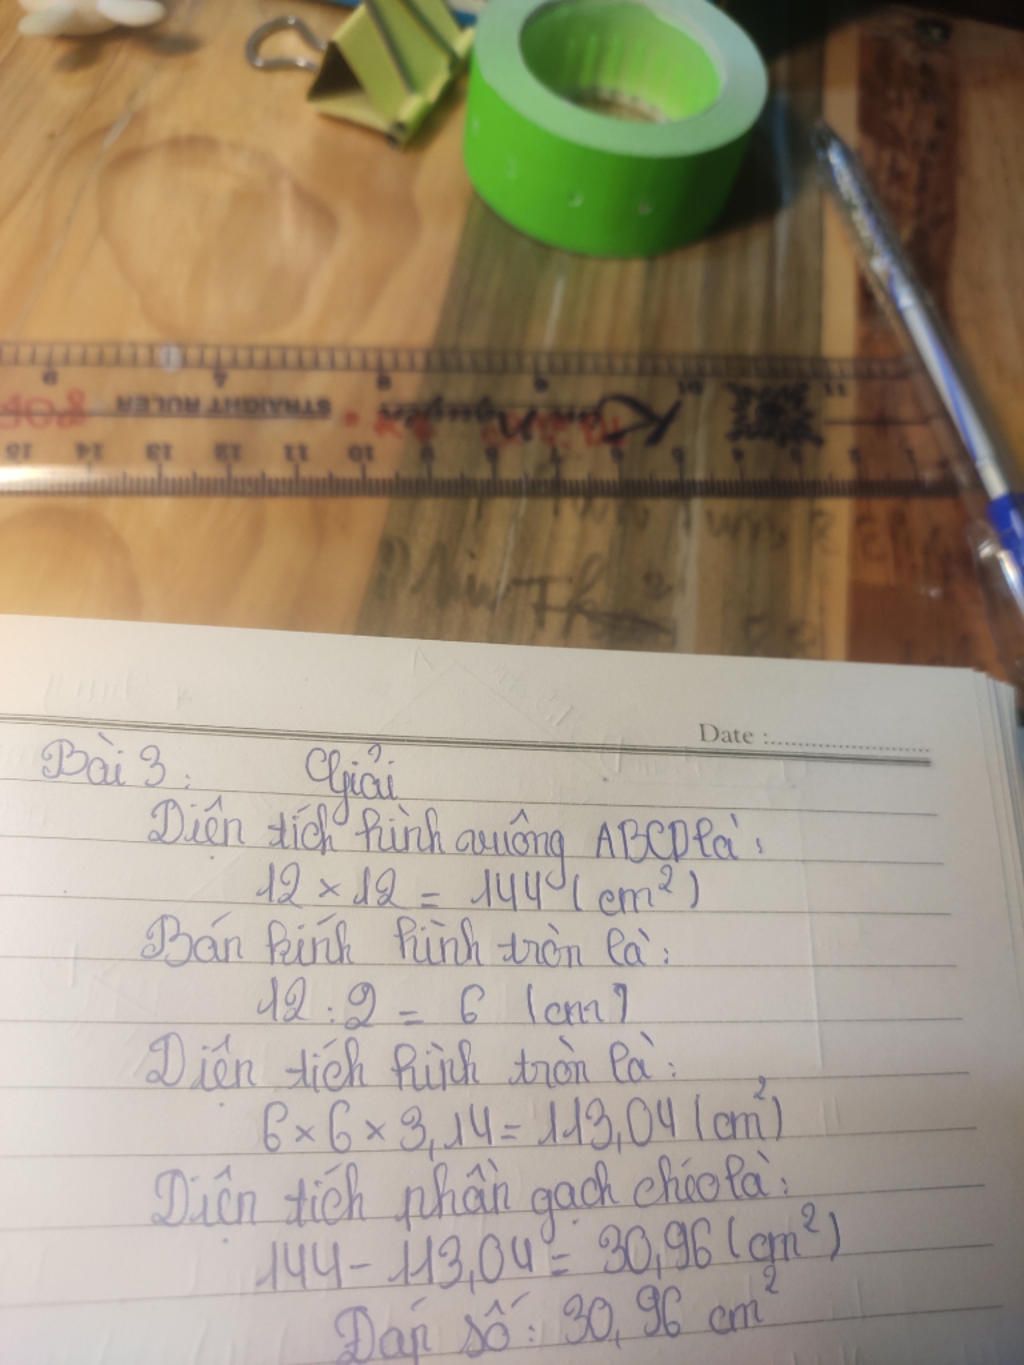 STRAIGHT RULER
15 14 13 12 11 10 9 8 7 6 5 4 3 2 1
Date :
Bài 3: Giải
Diện tích hình vuông ABCD là:
12 × 12 = 144 (cm²)
Bán kính hình tròn là:
12 : 2 = 6 (cm)
Diện tích hình tròn là:
6 × 6 × 3,14 = 113,04 (cm²)
Diện tích phần gạch chéo là:
144 - 113,04 = 30,96 (cm²)
Đáp số: 30,96 cm²